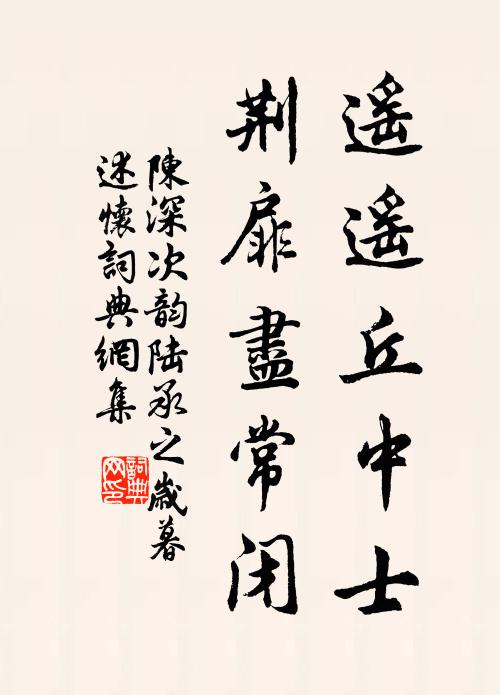 遥遥丘中士
荆扉盡常闭
陳深次韵陆承之歲暮
述懷詞典網集
詞典
网印